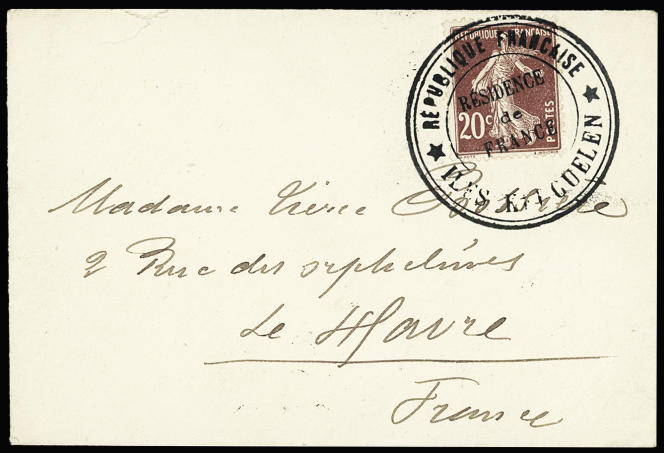 RÉPUBLIQUE FRANÇAISE
RÉPUBLIQUE FRANÇAISE
RÉSIDENCE
de
FRANCE
20c
POSTES
ILES KERGUELEN
Madame
2 Rue des orphelines
Le Havre
France